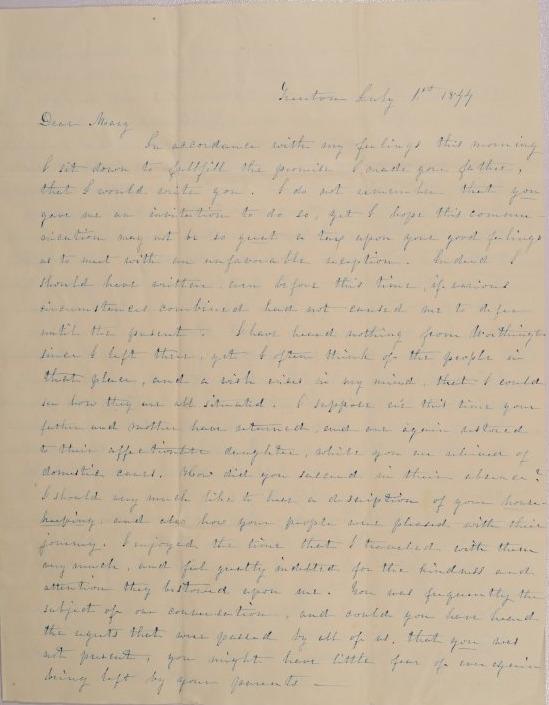 July 1st 1844
Dear Mary
In accordance with my feelings this morning
I sit down to fullfill the promise I made your father,
that I would write you. I do not remember that you
gave me an invitation to do so, yet I hope this commu-
nication may not be so great a tax upon your good feelings
as to meet with an unfavorable reception. Indeed I
should have written even before this time, if various
circumstances combined had not caused me to defer
until the present. I have heard nothing from Worthington
since I left there, yet I often think of the people in
that place, and a wish rises in my mind, that I could
see how they are all situated. I suppose ere this time your
father and mother have returned, and are again restored
to their affectionate daughter, while you are relieved of
domestic cares. How did you succeed in their absence?
I should very much like to hear a description of your house-
keeping, and also how your people were pleased with their
journey. I enjoyed the time that I traveled with them
very much, and feel greatly indebted for the kindness and
attention they bestowed upon me. You was frequently the
subject of our conversation, and could you have heard
the regrets that were passed by all of us, that you was
not present, you might have little fear of ever again
being left by your parents —